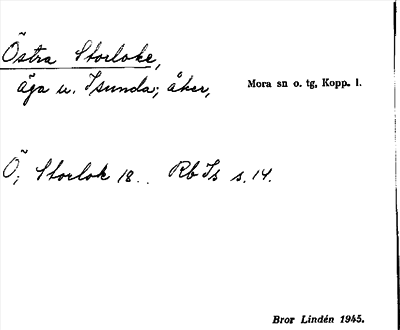 Östra Storloke,
äga u. Isunda; åker,
Mora sn o. tg, Kopp. l.
Ö; Storlok 18.. Rb Is s. 14.
Bror Lindén 1945.